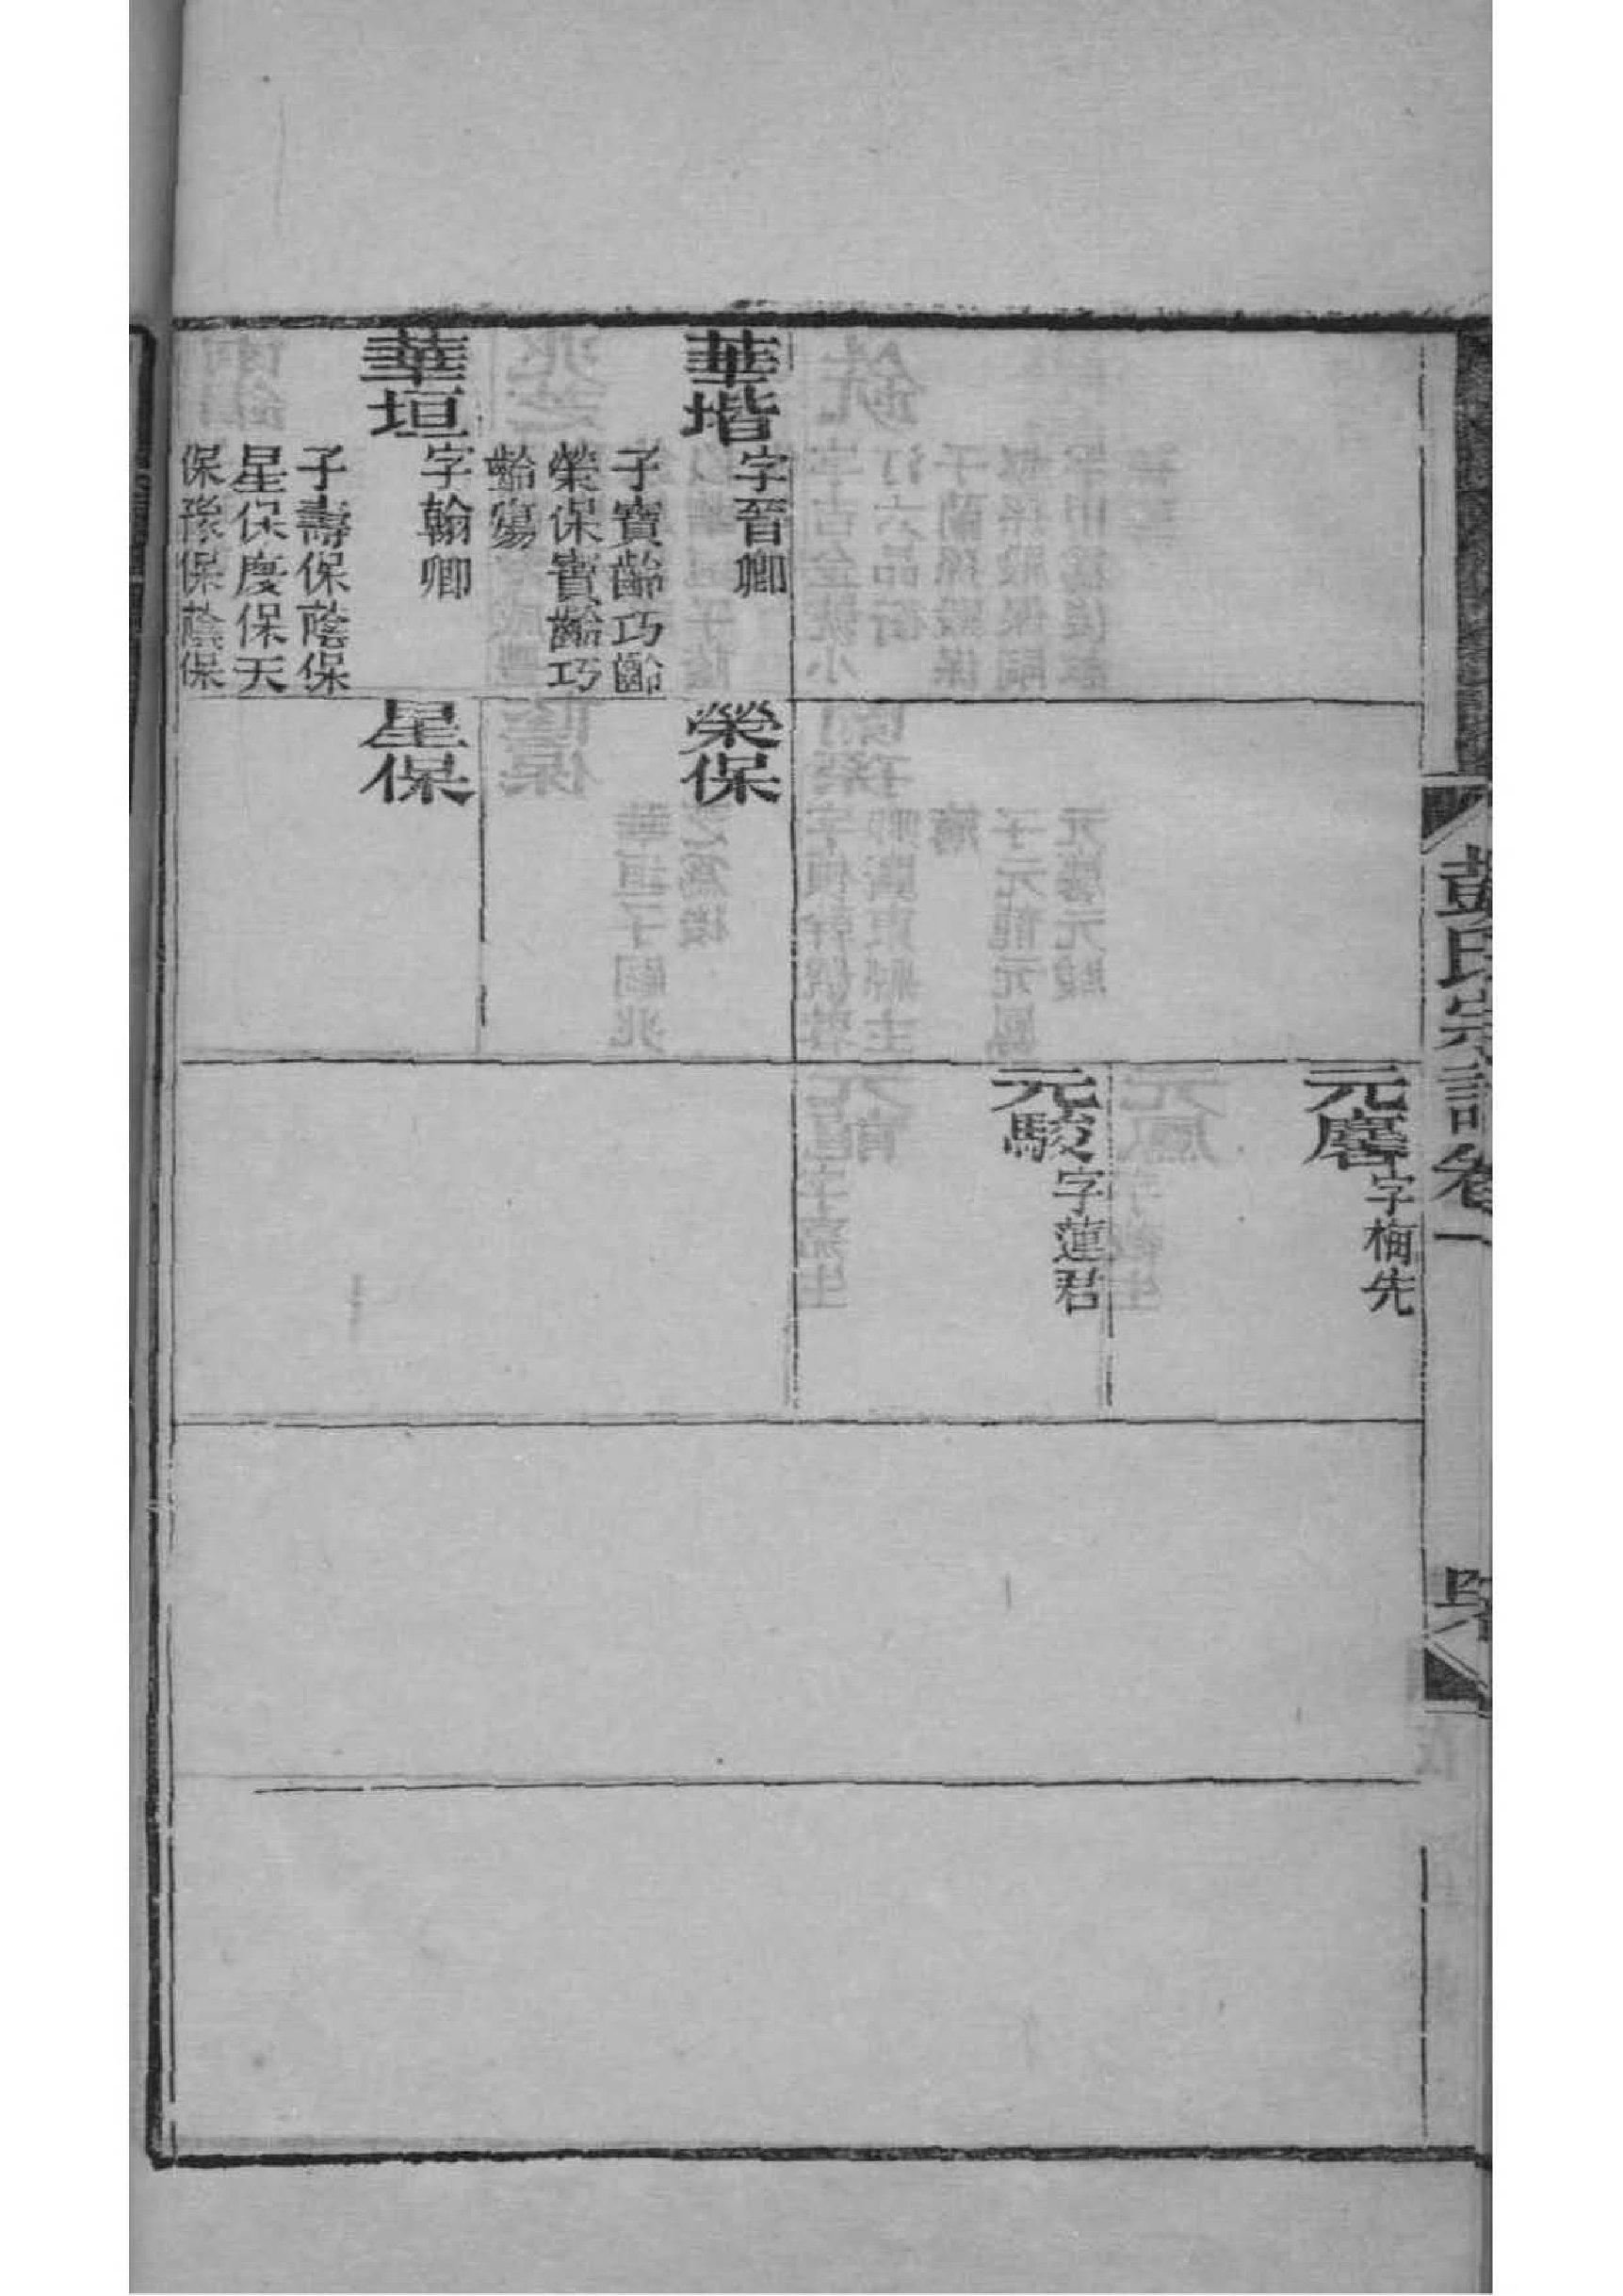 彭氏宗譜卷一
元麐
字梅先
元駿
字蓮君
華堦
字晉卿
子寶齡巧齡
榮保寶齡巧
齡殤
榮保
華垣
字翰卿
子壽保蔭保
星保慶保天
保豫保蔭保
星保